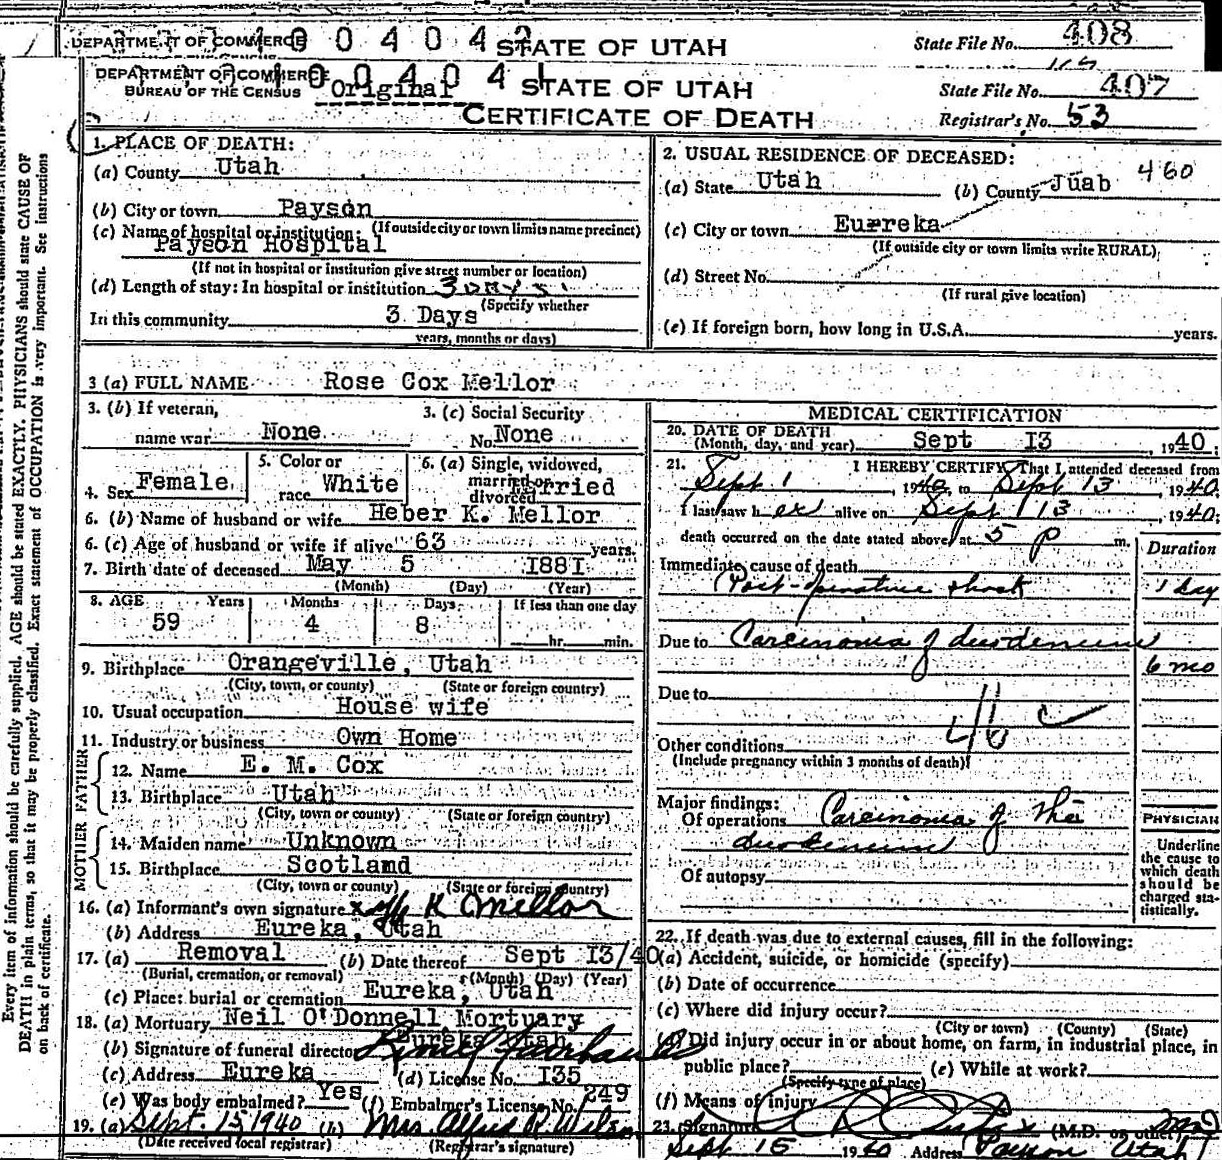 DEPARTMENT OF COMMERCE 0 0 4 0 4 2 STATE OF UTAH State File No. 408
DEPARTMENT OF COMMERCE 0 0 4 0 4 1 STATE OF UTAH State File No. 407
BUREAU OF THE CENSUS Original
CERTIFICATE OF DEATH Registrar's No. 53
1. PLACE OF DEATH:
(a) County Utah
(b) City or town Payson
(c) Name of hospital or institution: (If outside city or town limits name precinct)
Payson Hospital
(If not in hospital or institution give street number or location)
(d) Length of stay: In hospital or institution 3 DAYS
(Specify whether
In this community 3 Days
years, months or days)
2. USUAL RESIDENCE OF DECEASED:
(a) State Utah (b) County Juab 460
(c) City or town Eureka
(If outside city or town limits write RURAL)
(d) Street No.
(If rural give location)
(e) If foreign born, how long in U.S.A. years.
3 (a) FULL NAME Rose Cox Mellor
3. (b) If veteran, name war None
3. (c) Social Security No. None
4. Sex Female
5. Color or race White
6. (a) Single, widowed, married or divorced Married
6. (b) Name of husband or wife Heber K. Mellor
6. (c) Age of husband or wife if alive 63 years.
7. Birth date of deceased May 5 1881
(Month) (Day) (Year)
8. AGE Years Months Days If less than one day
59 4 8 hr. min.
9. Birthplace Orangeville, Utah
(City, town, or county) (State or foreign country)
10. Usual occupation House wife
11. Industry or business Own Home
FATHER
12. Name E. M. Cox
13. Birthplace Utah
(City, town or county) (State or foreign country)
MOTHER
14. Maiden name Unknown
15. Birthplace Scotland
(City, town or county) (State or foreign country)
16. (a) Informant's own signature x K Mellor
(b) Address Eureka, Utah
17. (a) Removal (b) Date thereof Sept 13/40
(Burial, cremation, or removal) (Month) (Day) (Year)
(c) Place: burial or cremation Eureka, Utah
18. (a) Mortuary Neil O'Donnell Mortuary
Eureka Utah
(b) Signature of funeral director
(c) Address Eureka (d) License No. 135
(e) Was body embalmed? Yes (f) Embalmer's License No. 249
19. (a) Sept. 15 1940 (b) Mrs.
(Date received local registrar) (Registrar's signature)
MEDICAL CERTIFICATION
20. DATE OF DEATH
(Month, day, and year) Sept 13, 1940;
21. I HEREBY CERTIFY, That I attended deceased from
Sept 1, 1940, to Sept 13, 1940;
I last saw her alive on Sept 13, 1940;
death occurred on the date stated above, at 5 p m.
Duration
Immediate cause of death
Post-operative shock 1 day
Due to Carcinoma of duodenum
6 mo
Due to
46 c
Other conditions
(Include pregnancy within 3 months of death)
Major findings:
Of operations Carcinoma of the
duodenum
Of autopsy
PHYSICIAN
Underline the cause to which death should be charged statistically.
22. If death was due to external causes, fill in the following:
(a) Accident, suicide, or homicide (specify)
(b) Date of occurrence
(c) Where did injury occur?
(City or town) (County) (State)
(d) Did injury occur in or about home, on farm, in industrial place, in
public place? (e) While at work?
(Specify type of place)
(f) Means of injury
23. Signature (M.D. or other)
Sept 15 1940 Address Payson Utah
Every item of information should be carefully supplied. AGE should be stated EXACTLY. PHYSICIANS should state CAUSE OF
DEATH in plain terms, so that it may be properly classified. Exact statement of OCCUPATION is very important. See instructions
on back of certificate.